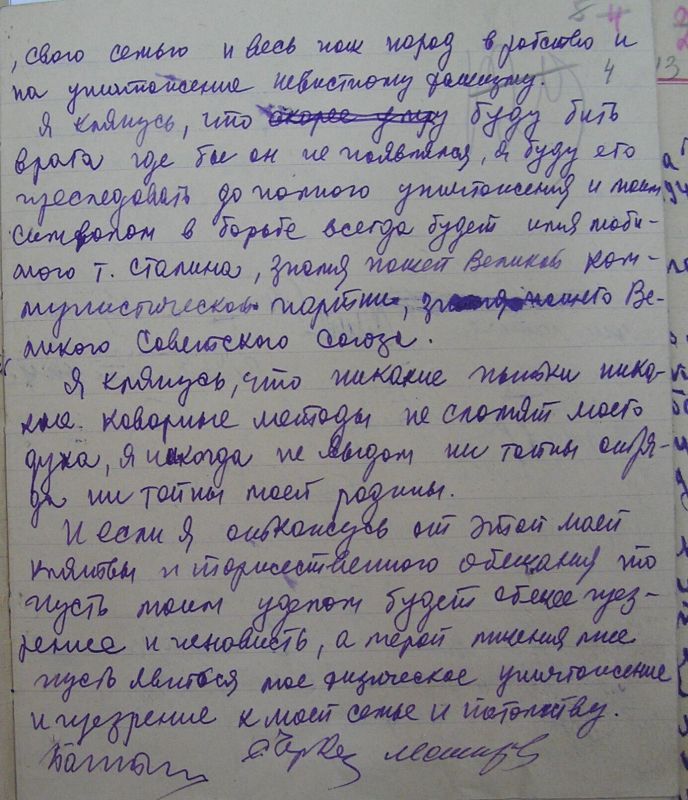 5 4
, свого семью и весь наш народ в рабство и
на уничтожение невистному фашизму. 4
13
Я клянусь, что скорее умру буду бить
врага где бы он не появлялся, я буду его
преследовать до полного уничтожения и моим
символом в борьбе всегда будет имя люби-
мого т. Сталина, знамя нашей Великой ком-
мунистической партии, знамя нашего Ве-
ликого Советского Союза.
Я клянусь, что никакие пытки ника-
кие коварные методы не сломят моего
духа, я никогда не выдам ни тайны отря-
да ни тайны моей родины.
И если я откажусь от этой моей
клятвы и торжественного обещания то
пусть моим уделом будет общее през-
рение и ненависть, а мерой мнения мне
пусть явится мое физическое уничтожение
и презрение к моей семье и потомству.